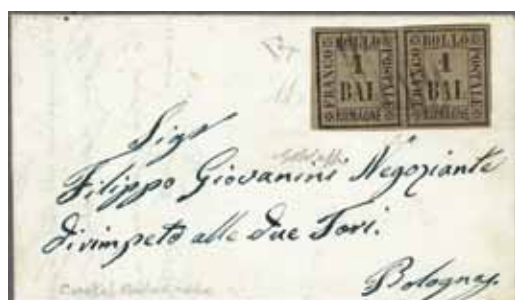 FRANCO BOLLO POSTALE
1
BAI
ROMAGNE
FRANCO BOLLO POSTALE
1
BAI
ROMAGNE
Sigr
Filippo Giovanini Negoziante
dirimpeto alle due Tori.
Bologna